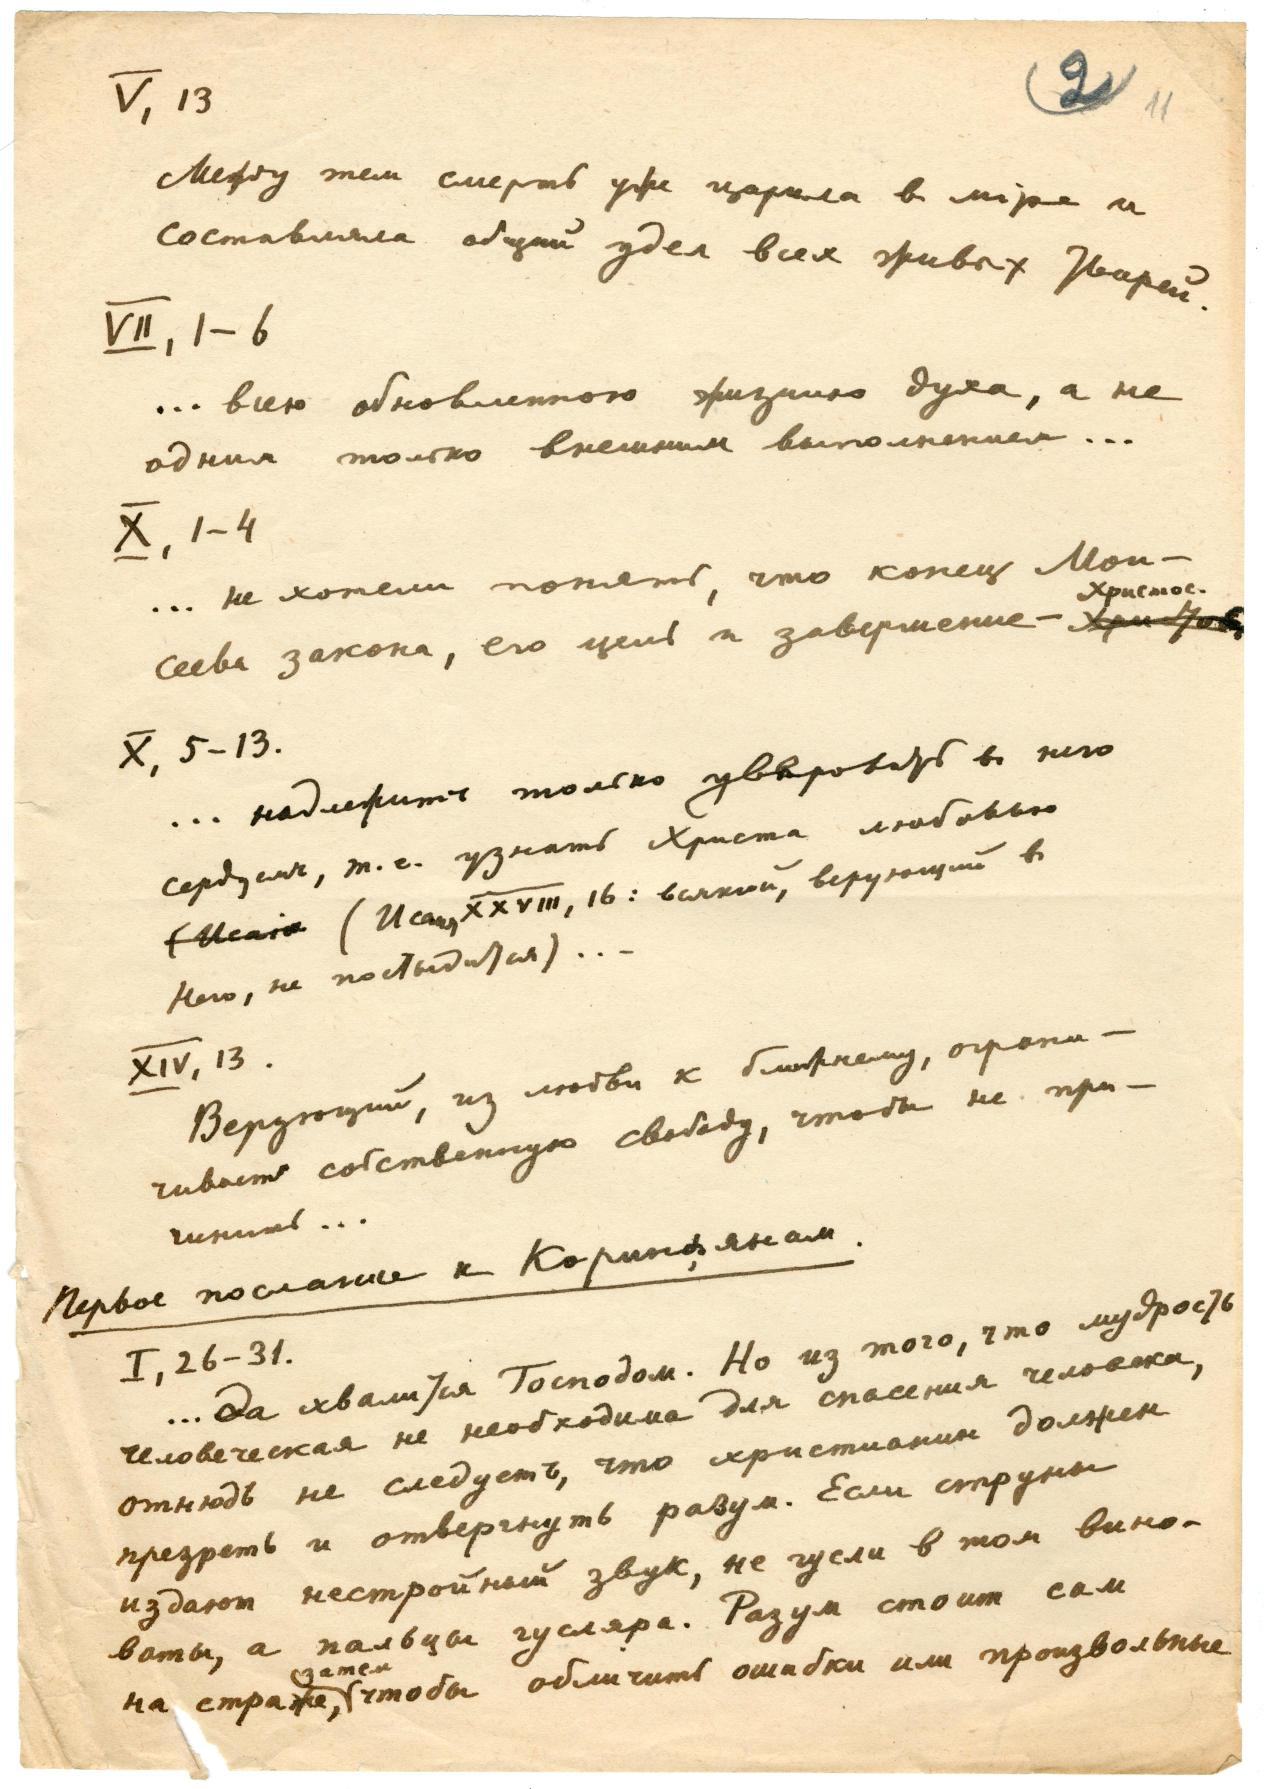 2 11
V, 13
Между тем смерть уже царила в мiре и
составляла общий удел всех живых тварей.
VII, 1–6
... всею обновленною жизнию духа, а не
одним только внешним выполнением ...
X, 1–4
... не хотели понять, что конец Мои–
Христос.
сеева закона, его цель и завершение – Христос,
X, 5–13.
... надлежитъ только увѣровать в него
сердцем, т.е. узнать Христа любовью
(Исаiя (Исаия XXVIII, 16: всякий, верующий в
Него, не постыдится) ...
XIV, 13.
Верующий, из любви к ближнему, ограни–
чивает собственную свободу, чтобы не при–
чинить ...
Первое послание к Коринѳянам.
I, 26–31.
... Да хвалится Господом. Но из того, что мудрость
человеческая не необходима для спасения человека,
отнюдь не следуетъ, что христианин должен
презреть и отвергнуть разум. Если струны
издают нестройный звук, не гусли в том вино-
ваты, а пальцы гусляра. Разум стоит сам
затем
на страже, чтобы обличить ошибки или произвольные